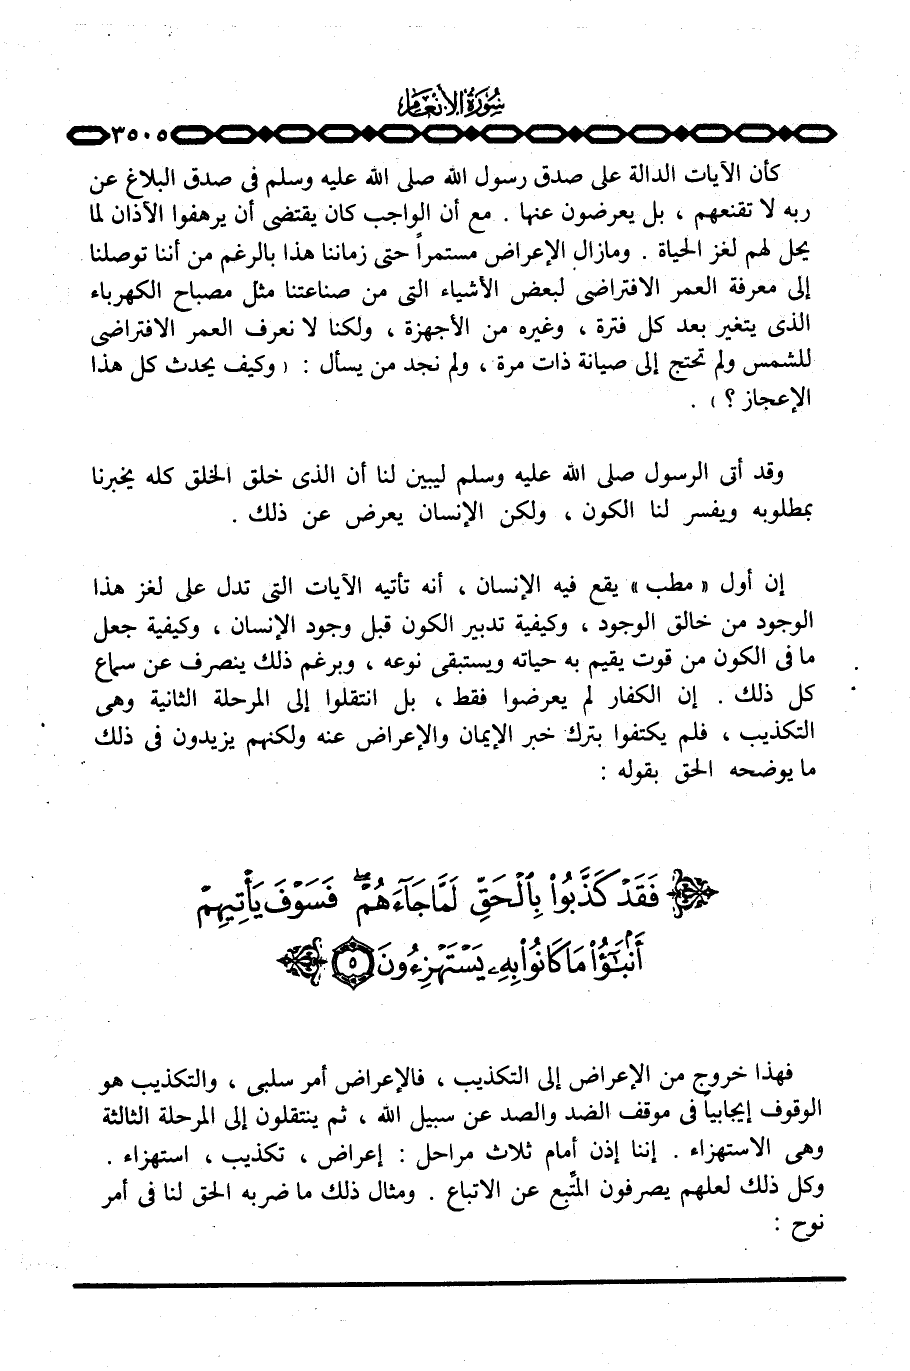 سُورَةُ الأَنْعَامِ
٣٥٠٥
كأن الآيات الدالة على صدق رسول الله صلى الله عليه وسلم فى صدق البلاغ عن
ربه لا تقنعهم ، بل يعرضون عنها . مع أن الواجب كان يقتضى أن يرهفوا الآذان لما
يحل لهم لغز الحياة . ومازال الإعراض مستمراً حتى زماننا هذا بالرغم من أننا توصلنا
إلى معرفة العمر الافتراضى لبعض الأشياء التى من صناعتنا مثل مصباح الكهرباء
الذى يتغير بعد كل فترة ، وغيره من الأجهزة ، ولكنا لا نعرف العمر الافتراضى
للشمس ولم تحتج إلى صيانة ذات مرة ، ولم نجد من يسأل : ( وكيف يحدث كل هذا
الإعجاز ؟ ) .
وقد أتى الرسول صلى الله عليه وسلم ليبين لنا أن الذى خلق الخلق كله يخبرنا
بمطلوبه ويفسر لنا الكون ، ولكن الإنسان يعرض عن ذلك .
إن أول « مطب » يقع فيه الإنسان ، أنه تأتيه الآيات التى تدل على لغز هذا
الوجود من خالق الوجود ، وكيفية تدبير الكون قبل وجود الإنسان ، وكيفية جعل
ما فى الكون من قوت يقيم به حياته ويستبقى نوعه ، وبرغم ذلك ينصرف عن سماع
كل ذلك . إن الكفار لم يعرضوا فقط ، بل انتقلوا إلى المرحلة الثانية وهى
التكذيب ، فلم يكتفوا بترك خبر الإيمان والإعراض عنه ولكنهم يزيدون فى ذلك
ما يوضحه الحق بقوله :
فَقَدْ كَذَّبُوا۟ بِٱلْحَقِّ لَمَّا جَآءَهُمْ ۖ فَسَوْفَ يَأْتِيهِمْ
أَنۢبَـٰٓؤُا۟ مَا كَانُوا۟ بِهِۦ يَسْتَهْزِءُونَ ٥
فهذا خروج من الإعراض إلى التكذيب ، فالإعراض أمر سلبى ، والتكذيب هو
الوقوف إيجابياً فى موقف الضد والصد عن سبيل الله ، ثم ينتقلون إلى المرحلة الثالثة
وهى الاستهزاء . إننا إذن أمام ثلاث مراحل : إعراض ، تكذيب ، استهزاء .
وكل ذلك لعلهم يصرفون المتَّبع عن الاتباع . ومثال ذلك ما ضربه الحق لنا فى أمر
نوح :